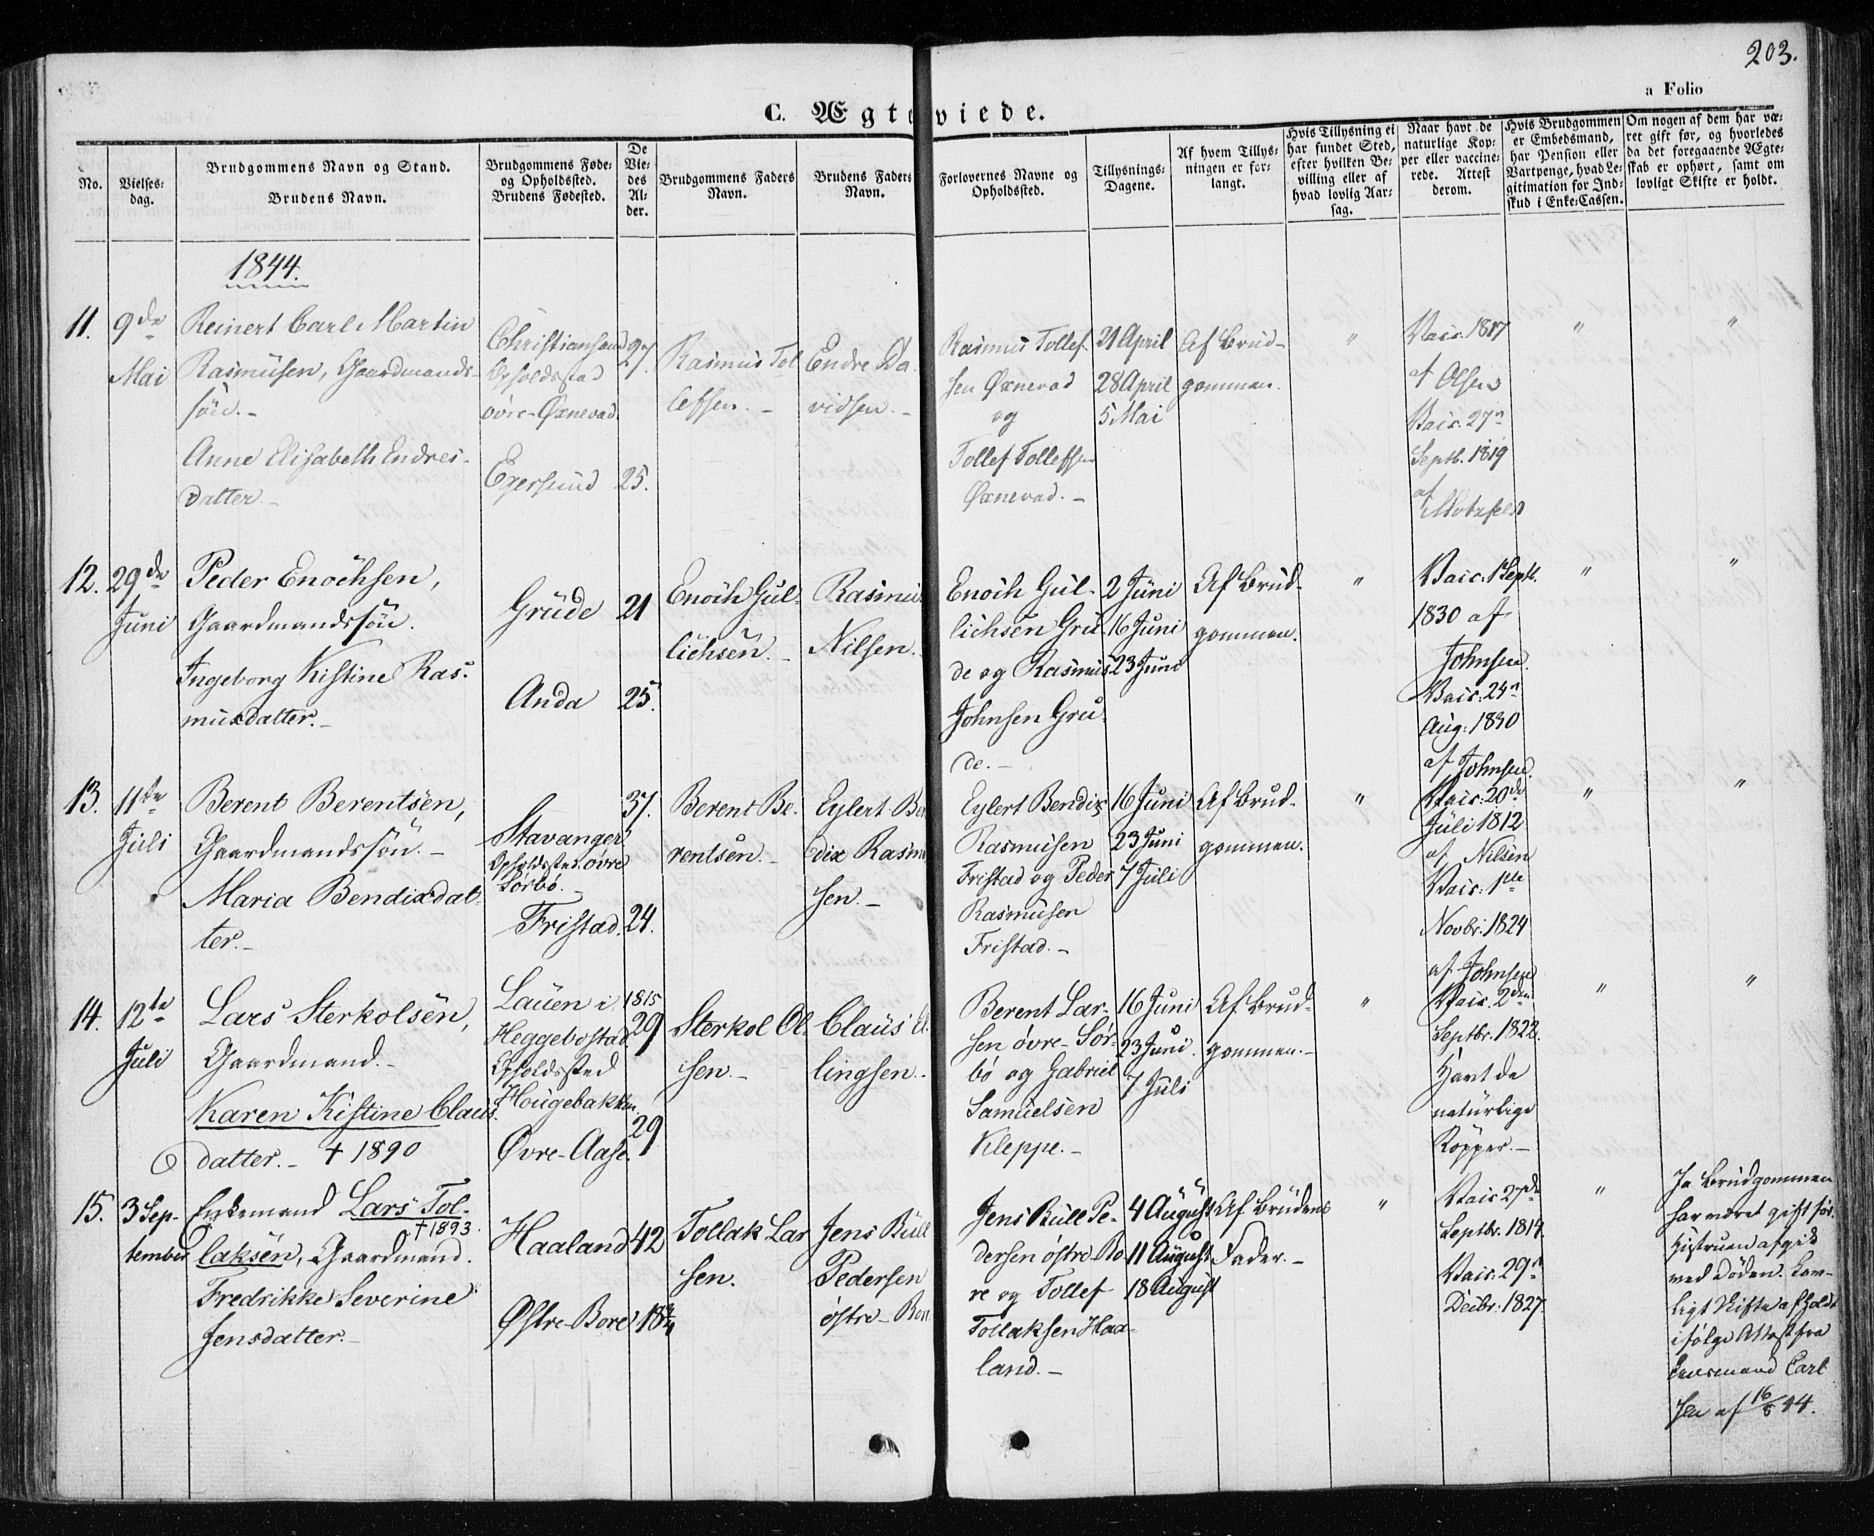 203.
a Folio
C. Ægteviede.
No.
Vielses-
dag.
Brudgommens Navn og Stand.
Brudens Navn.
Brudgommens Føde-
og Opholdssted.
Brudens Fødested.
De
Vie-
des
Al-
der.
Brudgommens Faders
Navn.
Brudens Faders
Navn.
Forlovernes Navne og
Opholdssted.
Tillysnings-
Dagene.
Af hvem Tillys-
ningen er for-
langt.
Hvis Tillysning ei
har fundet Sted,
efter hvilken Be-
villing eller af
hvad lovlig Aar-
sag.
Naar havt de
naturlige Kop-
per eller vaccine-
rede. Attest
derom.
Hvis Brudgommen
er Embedsmand,
har Pension eller
Vartpenge, hvad Le-
gitimation for Ind-
skud i Enke-Cassen.
Om nogen af dem har væ-
ret gift før, og hvorledes
da det foregaaende Ægte-
skab er ophørt, samt om
lovligt Skifte er holdt.
1844.
11.
9de
Mai
Reinert Carl Martin
Rasmusen, Gaardmands-
søn.-
Anne Elisabeth Endres-
datter.-
Christiansand
Opholdssted
øvre-Øxnevad
Egersund
27.
25.
Rasmus Tol
lefsen.-
Endre Da-
vidsen.-
Rasmus Tollef-
sen Øxnevad
og
Tollef Tollefsen
Øxnevad.-
21 April
28 April
5 Mai
Af Brud-
gommen.
"
Vaic. 1817
af Olsen
Vaic. 27n
Septb. 1819
af
"
"
12.
29de
Juni
Peder Enochsen,
Gaardmandssøn.
Ingeborg Kistine Ras-
musdatter.-
Grude
Anda
21
25.
Enoch Gul-
lichsen.-
Rasmus
Nilsen.
Enoch Gul-
lichsen Gru-
de og Rasmus
Johnsen Gru-
de.-
2 Juni
16 Juni
23 Juni
Af Brud-
gommen.
"
Vaic: 1 Septb.
1830 af
Johnsen.
Vaic: 24n
Aug: 1830
af Johnsen.
"
"
13.
11te
Juli
Berent Berentsen,
Gaardmandssøn.-
Maria Bendixdat-
ter.-
Stavanger
Opholdssted øvre
Sørbø.-
Fristad.
37.
24.
Berent Be-
rentsen.-
Eylert Ben
dix Rasmu
sen.-
Eylert Bendix
Rasmusen
Fristad og Peder
Rasmusen
Fristad.-
16 Juni
23 Juni
7 Juli
Af Brud-
gommen.
"
Vaic: 20de
Juli 1812
af Nilsen
Vaic: 1ste
Novbr. 1824
af Johnsen
"
"
14.
12te
Juli
Lars Sterkolsen,
Gaardmand.-
Karen Kistine Claus-
datter.- † 1890
Lauen i
Heggebostad
Opholdssted
Hougebakken
Øvre-Aase.
1815
29
29
Sterkol Ol-
sen.-
Claus El-
lingsen.-
Berent Lar-
sen øvre-Sør-
bø og Gabriel
Samuelsen
Kleppe.-
16 Juni
23 Juni
7 Juli
Af Brud-
gommen.-
"
Vaic. 2den
Septbr. 1822.
Havt de
naturlige
Kopper.-
"
"
15.
3 Sep-
tember
Enkemand Lars Tol-
† 1893.
laksen, Gaardmand.
Fredrikke Severine
Jensdatter.-
Haaland
Østre-Bore
42
18¾
Tollak Lar
sen.
Jens Bull
Pedersen
østre-Bore
Jens Bull Pe-
dersen østre Bo-
re og Tollef
Tollaksen Haa-
land.-
4 August
11 August
18 August
Af Brudens
Fader.-
"
Vaic 27de
Septbr. 1814.
Vaic. 29n
Decbr. 1827.
"
Ja Brudgommen
har været gift før.
Hustruen afgik
ved Døden. Lov-
ligt Skifte afholdt
ifølge Attest fra
Lensmand Carl-
sen af 16/8 44.